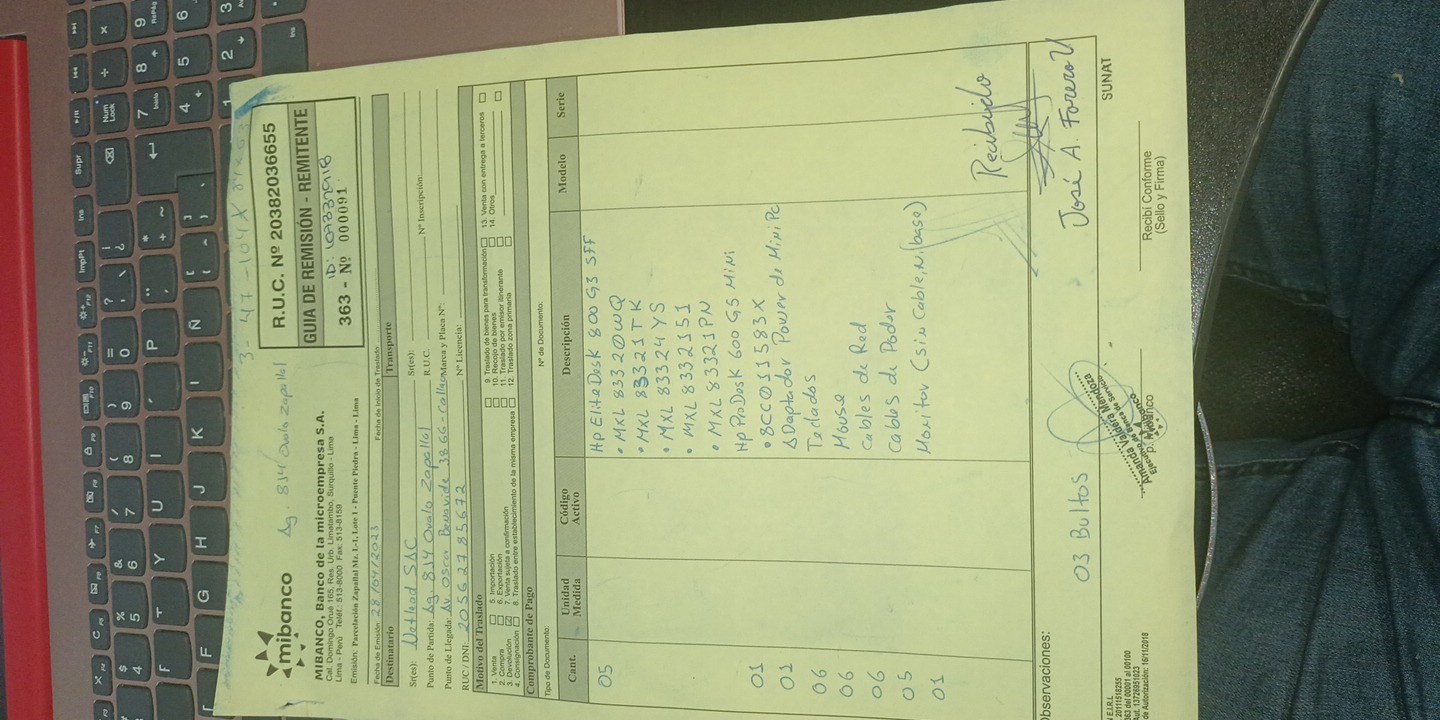 Ag. 814 Ovalo Zapallal
mibanco
MIBANCO, Banco de la microempresa S.A.
Cal. Domingo Orué 165, Res. Urb. Limatambo, Surquillo - Lima
Lima - Perú Teléf.: 513-8000 Fax: 513-8159
Emisión: Parcelación Zapallal Mz. L-1, Lote 1 - Puente Piedra - Lima - Lima
R.U.C. Nº 20382036655
GUIA DE REMISIÓN - REMITENTE
363 - Nº 000091
Fecha de Emisión: 28/04/2023 Fecha de Inicio de Traslado:
Destinatario Transporte
Sr(es): Netlead SAC Sr(es):
Punto de Partida: Ag. 814 Ovalo Zapallal R.U.C. Nº Inscripción:
Punto de Llegada: Av Oscar Benavide 3866 - callao Marca y Placa Nº:
RUC / DNI: 20562785672 Nº Licencia:
Motivo del Traslado
1. Venta 5. Importación 9. Traslado de bienes para transformación 13. Venta con entrega a terceros
2. Compra 6. Exportación 10. Recojo de bienes 14. Otros
3. Devolución 7. Venta sujeta a confirmación 11. Traslado por emisor itinerante
4. Consignación 8. Traslado entre establecimiento de la misma empresa 12. Traslado zona primaria
Comprobante de Pago
Tipo de Documento: Nº de Documento:
Cant. Unidad Medida Código Activo Descripción Modelo Serie
05 Hp EliteDesk 800 G3 SFF
• MXL 83320WQ
• MXL 83321TK
• MXL 83324YS
• MXL 8332151
• MXL 83321PN
01 Hp ProDesk 600 G5 Mini
• 8CC011583X
01 Adaptador Power de Mini Pc
06 Teclados
06 Mouse
06 Cables de Red
05 Cables de Poder
01 Monitor (sin Cable, Ni base)
Recibido
José A. Forero V
Observaciones: 03 Bultos
Amanda Valdera Mendoza
Ejecutivo de Banca de Servicio
p. Mibanco
Recibí Conforme
(Sello y Firma)
SUNAT
N E.I.R.L
20111518255
363 del 00001 al 00100
Aut. 13726951023
de Autorización: 16/11/2018